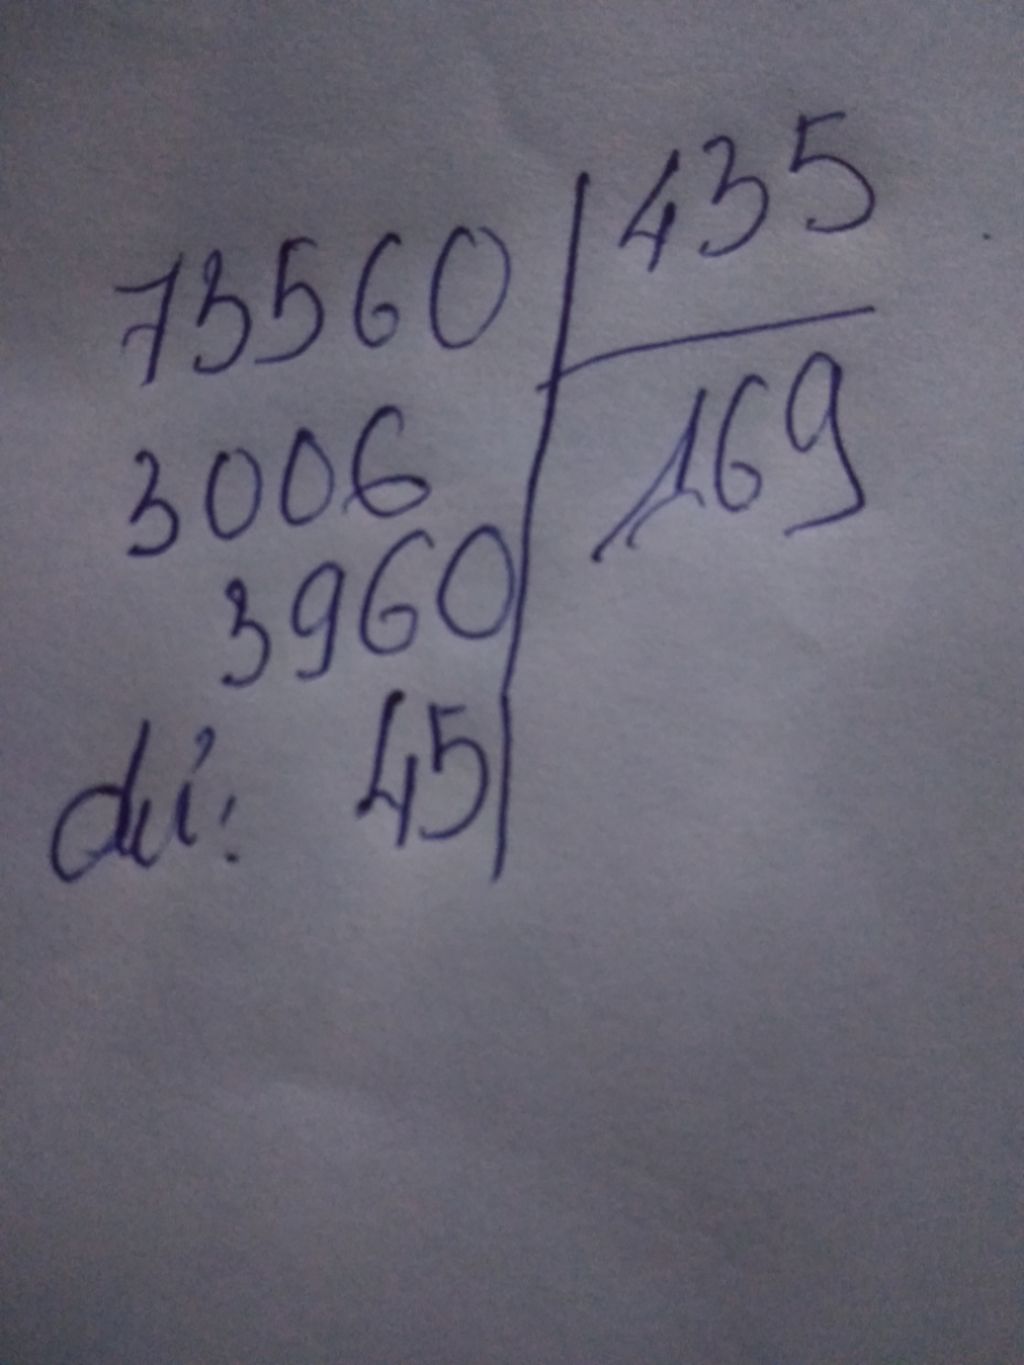 73560 435
3006 169
3960
dư: 45